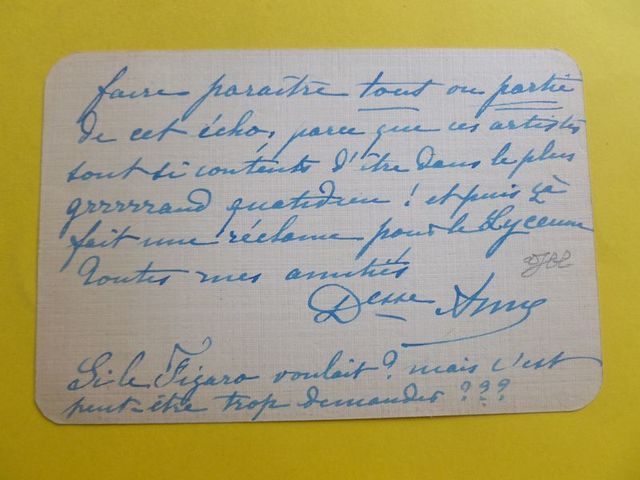 faire paraître tout ou partie
de cet écho, parce que ces artistes
sont si contents d'être dans le plus
grrrrrand quotidien ! et puis çà
fait une réclame pour le Lyceum
Toutes mes amitiés
Desse Anne
Si le Figaro voulait ? mais c'est
peut-être trop demander ???